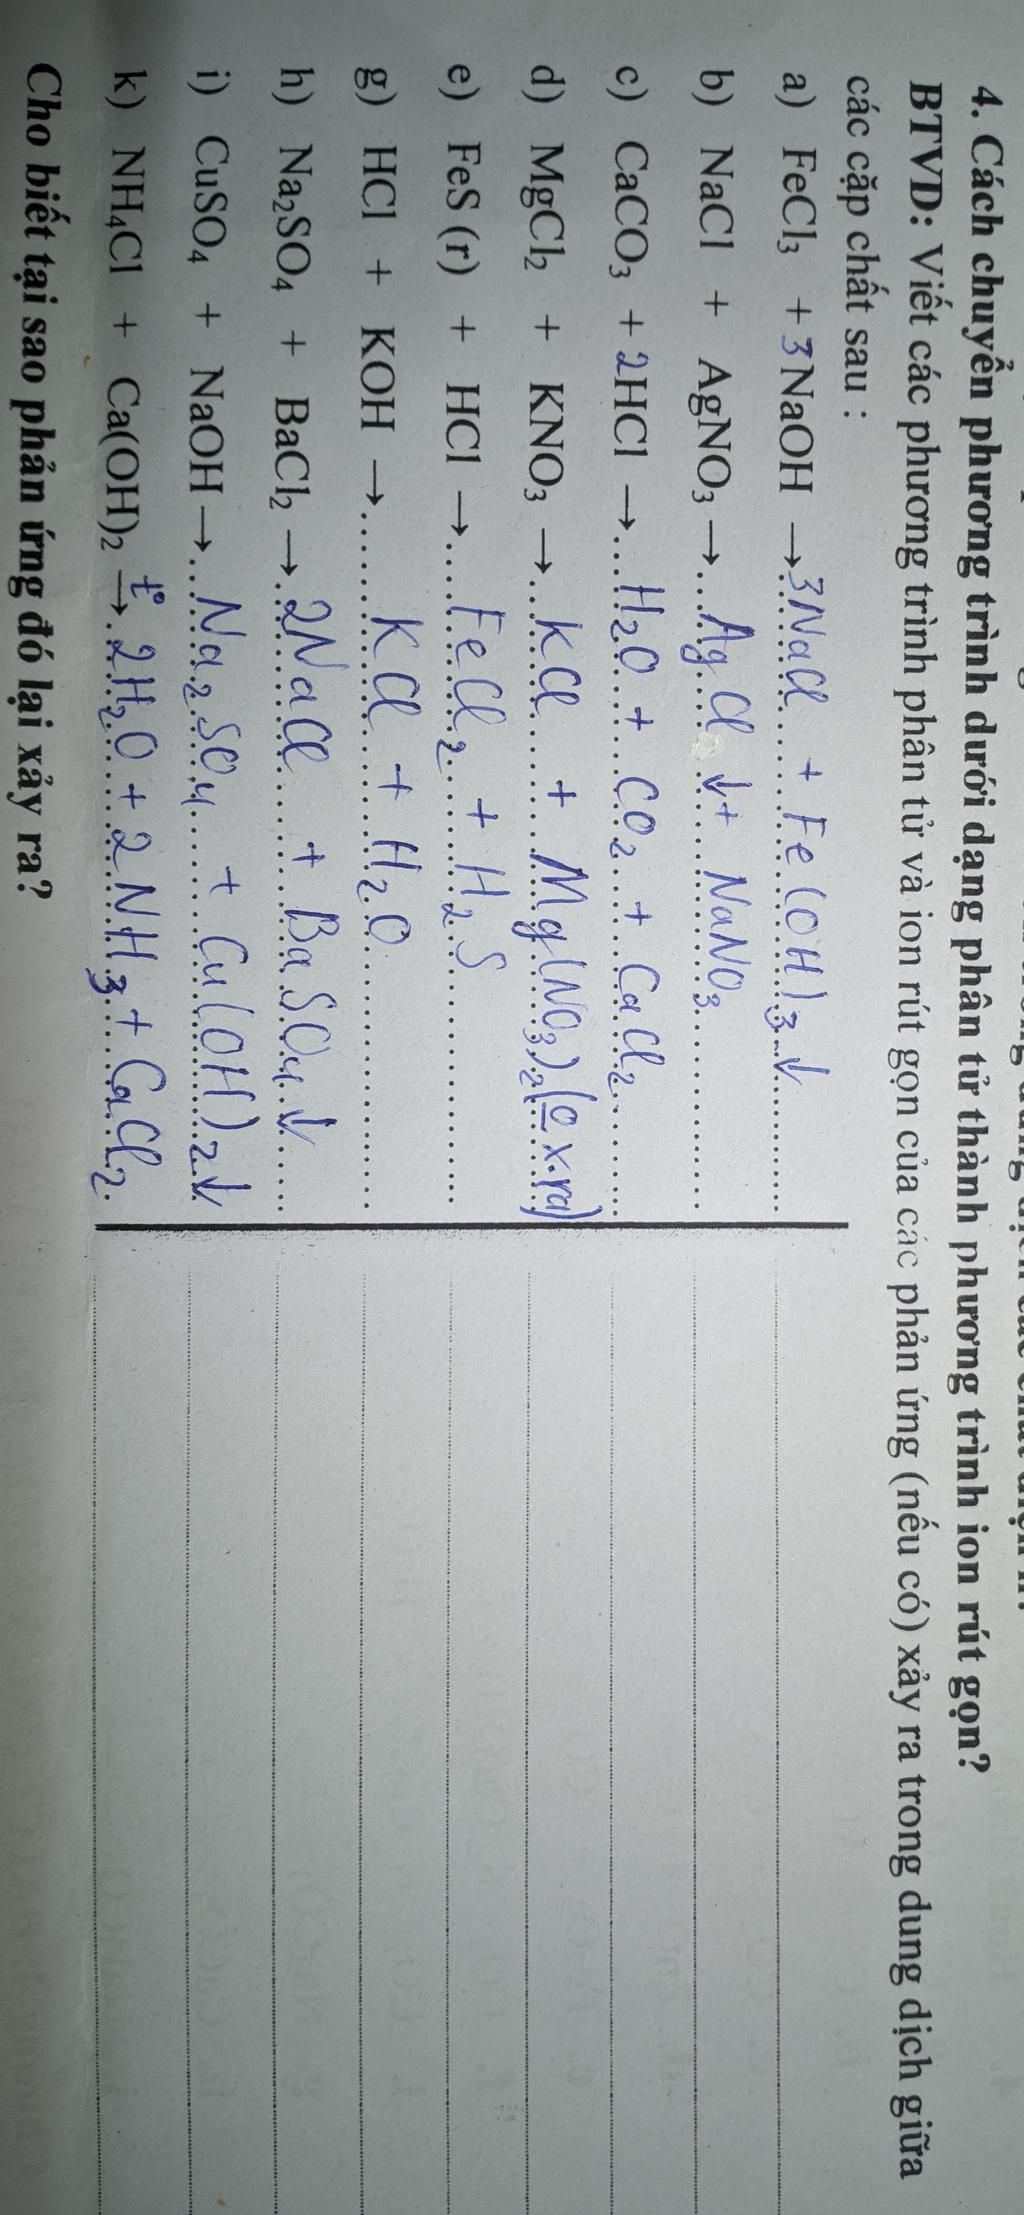 4. Cách chuyển phương trình dưới dạng phân tử thành phương trình ion rút gọn?
BTVD: Viết các phương trình phân tử và ion rút gọn của các phản ứng (nếu có) xảy ra trong dung dịch giữa
các cặp chất sau :
a) FeCl₃ + 3 NaOH → 3NaCl + Fe(OH)₃ ↓
b) NaCl + AgNO₃ → AgCl ↓ + NaNO₃
c) CaCO₃ + 2HCl → H₂O + CO₂ + CaCl₂
d) MgCl₂ + KNO₃ → KCl + Mg(NO₃)₂ (o x.ra)
e) FeS (r) + HCl → FeCl₂ + H₂S
g) HCl + KOH → KCl + H₂O
h) Na₂SO₄ + BaCl₂ → 2NaCl + BaSO₄ ↓
i) CuSO₄ + NaOH → Na₂SO₄ + Cu(OH)₂ ↓
k) NH₄Cl + Ca(OH)₂ →t° 2H₂O + 2NH₃ + CaCl₂
Cho biết tại sao phản ứng đó lại xảy ra?